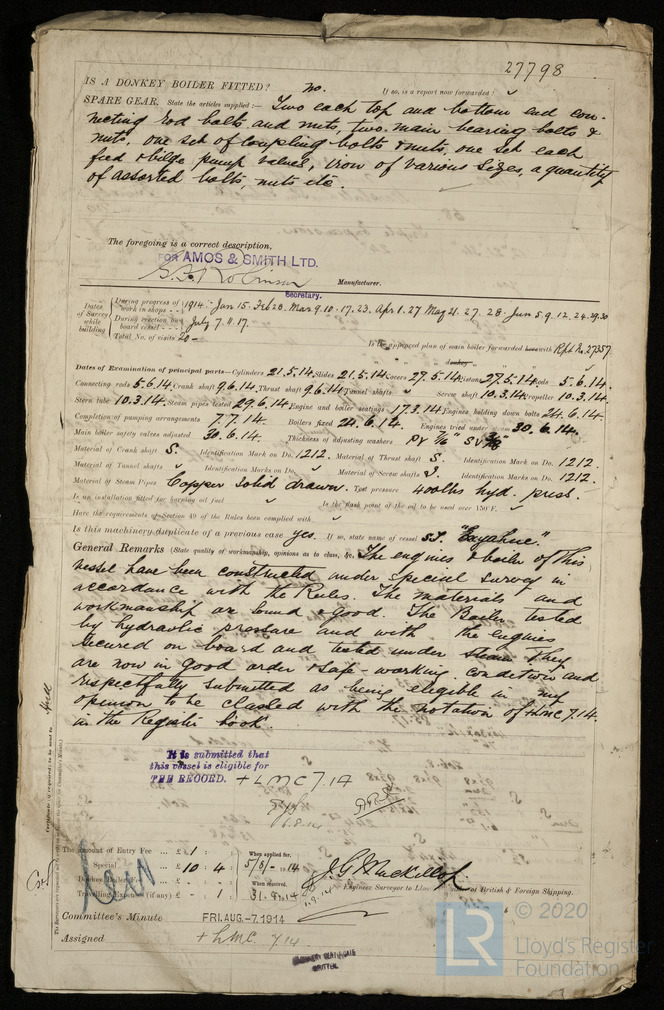 27798
IS A DONKEY BOILER FITTED? no. If so, is a report now forwarded?
SPARE GEAR. State the articles supplied:— Two each top and bottom end con-
necting rod bolts and nuts, two main bearing bolts &
nuts, one set of coupling bolts & nuts, one set each
feed & bilge pump valves, iron of various sizes, a quantity
of assorted bolts, nuts etc.
The foregoing is a correct description,
FOR AMOS & SMITH LTD.
Manufacturer.
Secretary.
Dates of Survey while building
During progress of work in shops - - 1914:- Jan 15. Feb 28. Mar 9.10.17.23. Apr 1.27 May 21.27.28. Jun 5.9.12.24.29.30
During erection on board vessel - - - July 7.11.17.
Total No. of visits 20-
Is the approved plan of main boiler forwarded herewith Rpt No. 27357
" " " donkey " " "
Dates of Examination of principal parts—Cylinders 21.5.14. Slides 21.5.14. Covers 27.5.14. Pistons 27.5.14. Rods 5.6.14.
Connecting rods 5.6.14. Crank shaft 9.6.14. Thrust shaft 9.6.14. Tunnel shafts Screw shaft 10.3.14. Propeller 10.3.14.
Stern tube 10.3.14. Steam pipes tested 29.6.14. Engine and boiler seatings 17.3.14. Engines holding down bolts 24.6.14.
Completion of pumping arrangements 7.7.14. Boilers fixed 24.6.14. Engines tried under steam 30.6.14.
Main boiler safety valves adjusted 30.6.14. Thickness of adjusting washers
Material of Crank shaft S. Identification Mark on Do. 1212. Material of Thrust shaft S. Identification Mark on Do. 1212.
Material of Tunnel shafts Identification Marks on Do. Material of Screw shafts Identification Marks on Do. 1212.
Material of Steam Pipes Copper solid drawn. Test pressure 400lbs hyd. press.
Is an installation fitted for burning oil fuel Is the flash point of the oil to be used over 150°F.
Have the requirements of Section 49 of the Rules been complied with
Is this machinery duplicate of a previous case yes. If so, state name of vessel
General Remarks (State quality of workmanship, opinions as to class, &c. The engines & boiler of this
vessel have been constructed under special survey in
accordance with the Rules. The materials and
workmanship are sound & good. The Boiler tested
by hydraulic pressure and with the engines
secured on board and tested under steam They
are now in good order & safe-working condition and
respectfully submitted as being eligible in my
opinion to be classed with the notation of +LMC 7.14.
in the Register book.
It is submitted that
this vessel is eligible for
THE RECORD. + LMC 7.14
The amount of Entry Fee .. £ 1 : When applied for,
Special .. £ 10 : 4 : 5/8/- 1914
Donkey Boiler Fee .. £ - : - : When received,
Travelling Expenses (if any) £ - : 1 :
Engineer Surveyor to Lloyd's Register of British & Foreign Shipping.
Committee's Minute FRI. AUG. -7. 1914
Assigned + LMC. 7.14
Certificate (if required) to be sent to Hull
© 2020
LR
Lloyd's Register
Foundation